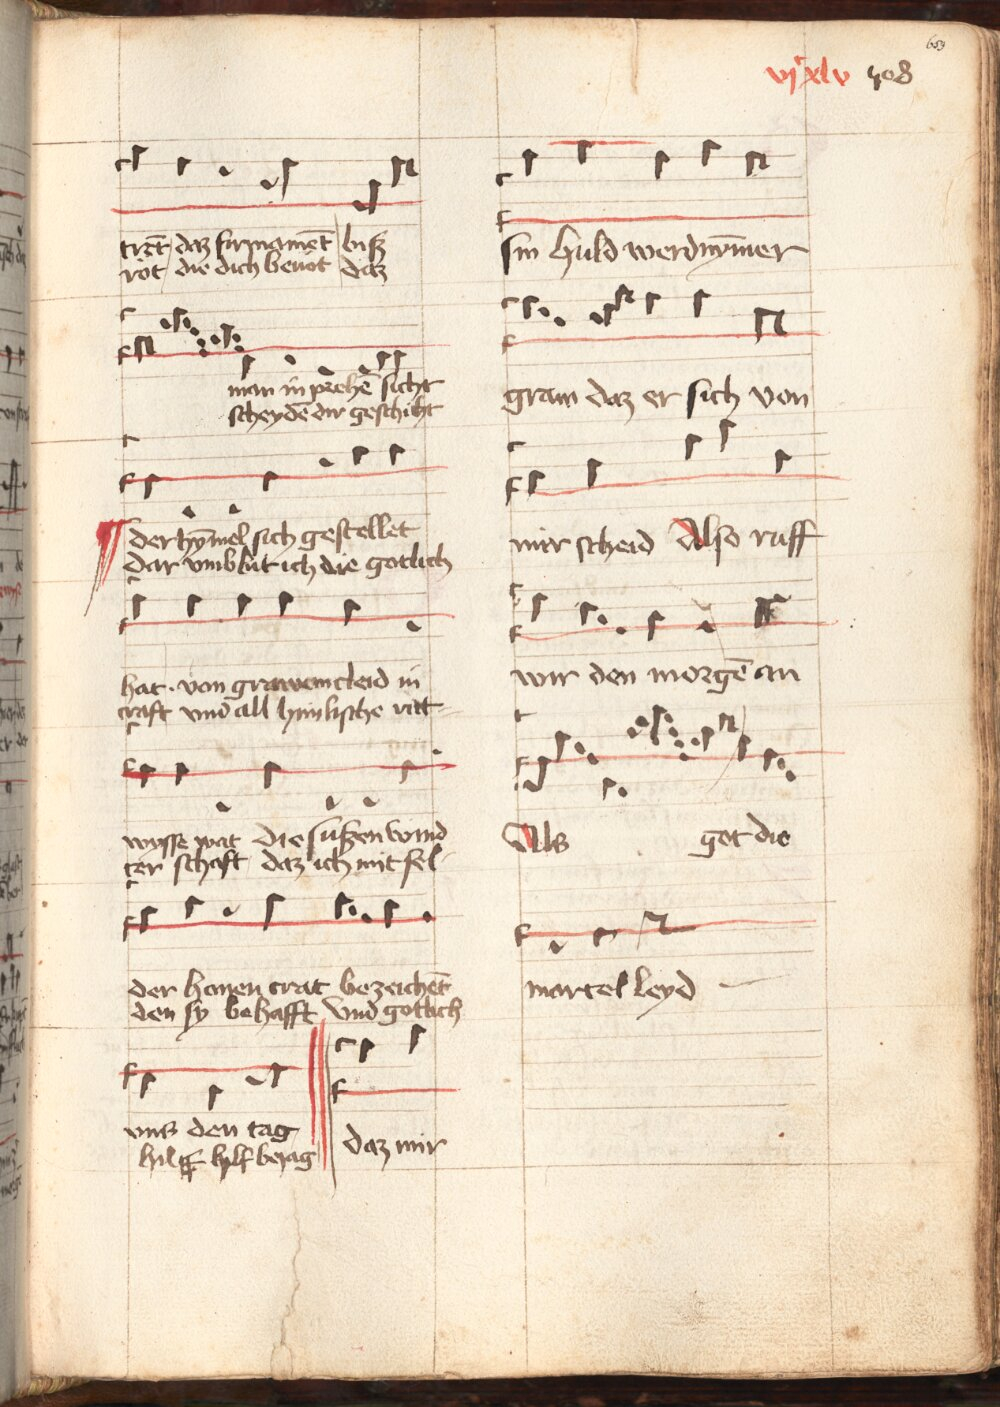 659
vjᶜxlv 708
trēt daz firmamēt biß
rot die dich benot daz
man in prehē sicht
scheydē dir geschiht
der hȳmel sich gestellet
dar vmb lut ich die gotlich
hat · von grawem cleid in
craft vnd all himlische ritt
wysse wat die sußen wind
ter schaft daz ich mit sel
der hanen crat bezeichēt
den sy behafft vnd gotlich
vns den tag
hilf bejag
daz mir
sin huld werd nȳmer
gram daz er sich von
mir scheid Also ruff
wir den morgē an
Als got die
martel leyd